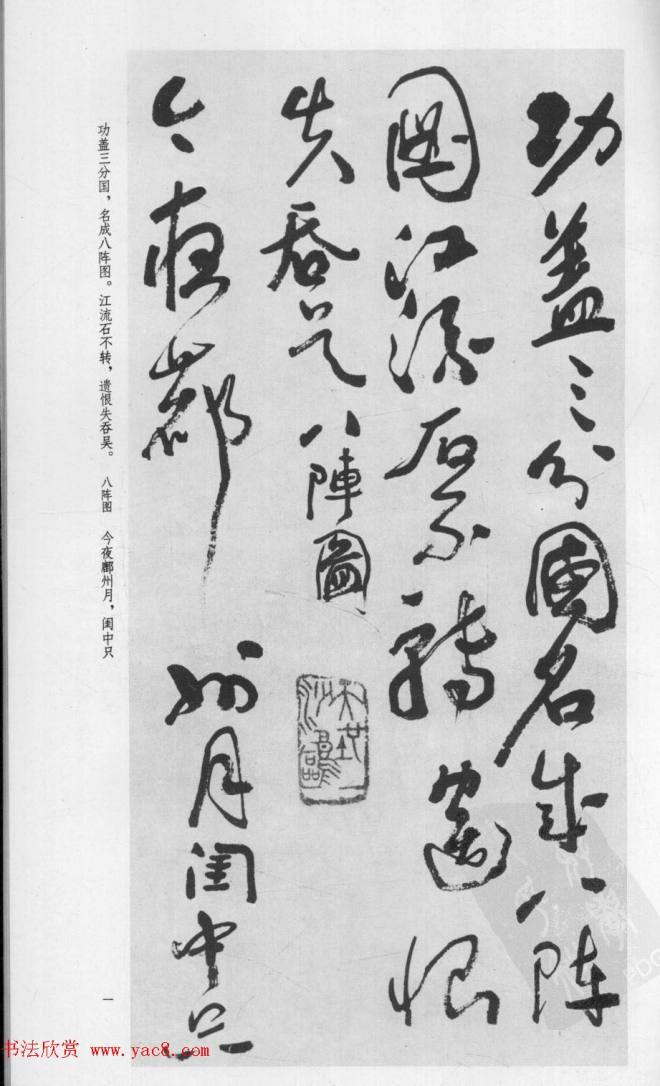 功蓋三分國名成八陣
圖江流石不轉遺恨
失吞吴 八陣圖
今夜鄜
州月閨中只
功盖三分国，名成八阵图。江流石不转，遗恨失吞吴。 八阵图 今夜鄜州月，闺中只
一
书法欣赏 www.yac8.com